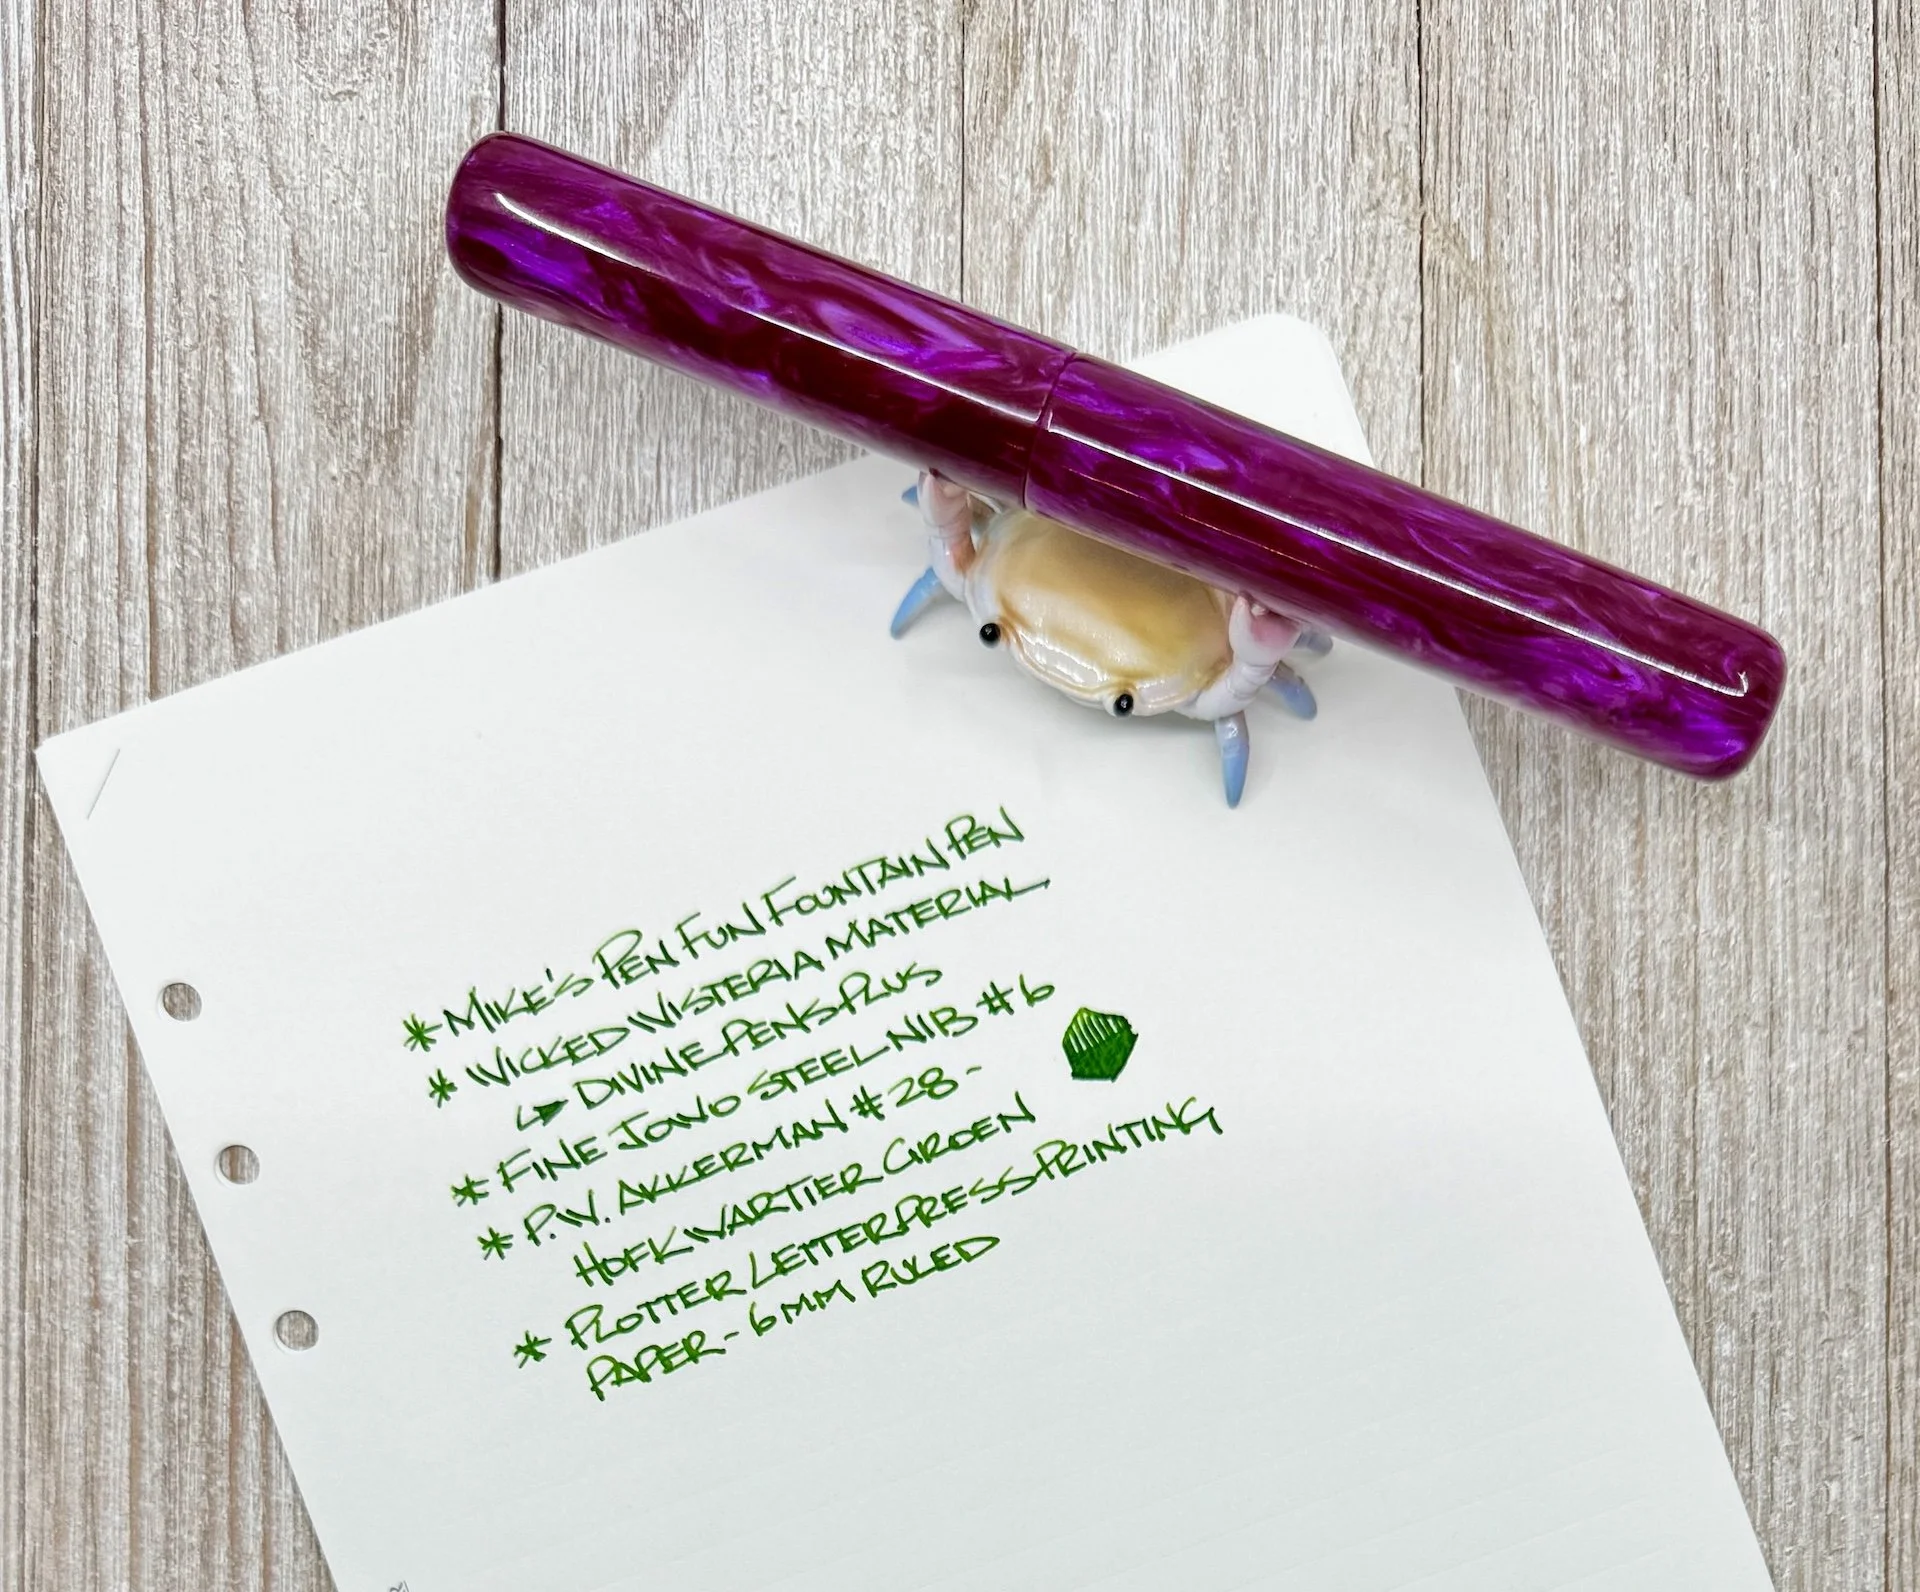 * MIKE'S PEN FUN FOUNTAIN PEN
* WICKED WISTERIA MATERIAL
↳ DIVINE PENS PLUS
* FINE JOWO STEEL NIB #6
* P.W. AKKERMAN #28 -
HOFKWARTIER GROEN
* PLOTTER LETTERPRESS PRINTING
PAPER - 6MM RULED